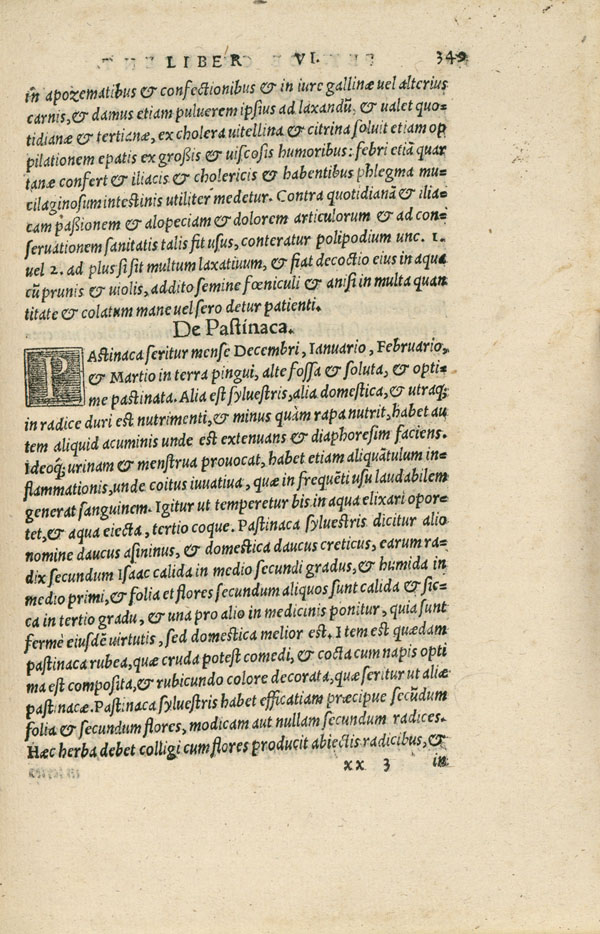 LIBER VI. 349
in apozematibus & confectionibus & in iure gallinæ uel alterius
carnis, & damus etiam puluerem ipsius ad laxandũ, & ualet quo=
tidianæ & tertianæ, ex cholera uitellina & citrina soluit etiam op
pilationem epatis ex großis & uiscosis humoribus: febri etiã quar
tanæ confert & iliacis & cholericis & habentibus phlegma mu=
cilaginosum intestinis utiliter medetur. Contra quotidianã & ilia=
cam paßionem & alopeciam & dolorem articulorum & ad con=
seruationem sanitatis talis fit usus, conteratur polipodium unc. 1.
uel 2. ad plus si sit multum laxatiuum, & fiat decoctio eius in aqua
cũ prunis & uiolis, addito semine fœniculi & anisi in multa quan
titate & colatum mane uel sero detur patienti.
De Pastinaca.
PAstinaca seritur mense Decembri, Ianuario, Februario,
& Martio in terra pingui, alte fossa & soluta, & opti=
me pastinata. Alia est syluestris, alia domestica, & utraq;
in radice duri est nutrimenti, & minus quàm rapa nutrit, habet au
tem aliquid acuminis unde est extenuans & diaphoresim faciens.
Ideoq; urinam & menstrua prouocat, habet etiam aliquãtulum in=
flammationis, unde coitus iuuatiua, quæ in frequẽti usu laudabilem
generat sanguinem. Igitur ut temperetur bis in aqua elixari opor=
tet, & aqua eiecta, tertio coque. Pastinaca syluestris dicitur alio
nomine daucus asininus, & domestica daucus creticus, earum ra=
dix secundum Isaac calida in medio secundi gradus, & humida in
medio primi, & folia et flores secundum aliquos sunt calida & sic=
ca in tertio gradu, & una pro alio in medicinis ponitur, quia sunt
fermè eiusdẽ uirtutis, sed domestica melior est. Item est quædam
pastinaca rubea, quæ cruda potest comedi, & cocta cum napis opti
ma est composita, & rubicundo colore decorata, quæ seritur ut aliæ
pastinacæ. Pastinaca syluestris habet efficatiam præcipue secũdum
folia & secundum flores, modicam aut nullam secundum radices.
Hæc herba debet colligi cum flores producit abiectis radicibus, &
xx 3 in